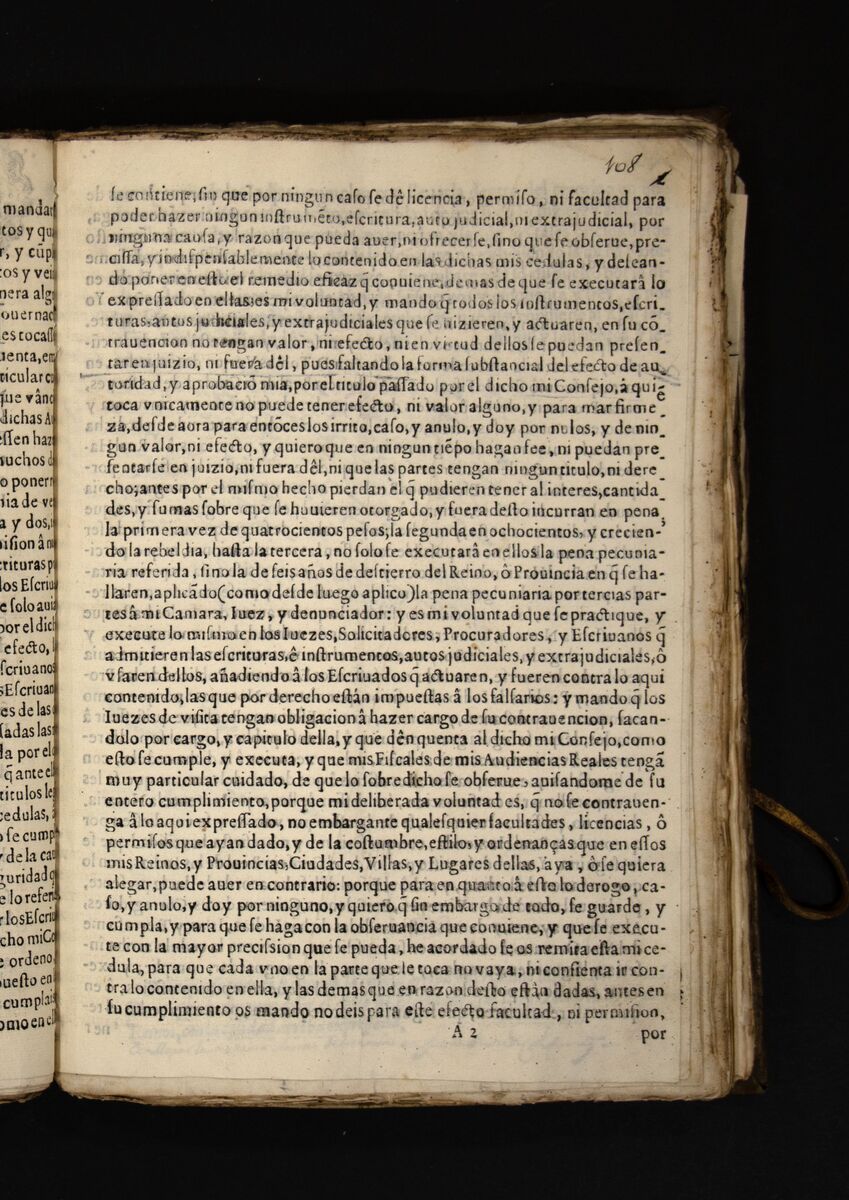 mandar
tos y qu
r, y cūp
tos y ven
nera alg
ouernac
es tocass
uenta, en
ticular co
que vânc
dichas A
essen haz
uchos d
o ponerr
ria de ve
a y dos, i
ision â n
crituras p
los Escriu
e solo aui
por el dici
efecto, l
scriuanos
sEscriuan
es de las
sadas las
la por el
q̃ ante el
titulos le
cedulas, i
o se cump
y de la ca
guridad q
e lo refer
r los Escriu
cho mi Co
e ordeno
uesto en
cumplais
omo en el
108
2
se contiene, sin que por ningun caso se dê licencia, permiso, ni facultad para
poder hazer ningun instrumẽto, escritura, auto judicial, ni extrajudicial, por
ninguna causa, y razon que pueda auer, ni ofrecerse, sino que se obserue, pre-
cissa, y indispensablemente lo contenido en las dichas mis cedulas, y desean-
do poner en esto el remedio eficaz q̃ conuiene, demas de que se executarâ lo
expressado en ellas: es mi voluntad, y mando q̃ todos los instrumentos, escri-
turas, autos judiciales, y extrajudiciales que se hizieren, y actuaren, en su cō-
trauencion no tengan valor, ni efecto, ni en virtud dellos se puedan presen-
tar en juizio, ni fuera dêl, pues faltando la forma substancial del efecto de au-
toridad, y aprobaciō mia, por el titulo passado por el dicho mi Consejo, â quiẽ
toca vnicamente no puede tener efecto, ni valor alguno, y para mar firme
za, desde aora para entōces los irrito, caso, y anulo, y doy por nulos, y de nin-
gun valor, ni efecto, y quiero que en ningun tiẽpo hagan fee, ni puedan pre-
sentarse en juizio, ni fuera dêl, ni que las partes tengan ningun titulo, ni dere-
cho; antes por el mismo hecho pierdan el q̃ pudieren tener al interes, cantida-
des, y sumas sobre que se huuieren otorgado, y fuera desto incurran en pena,
la primera vez de quatrocientos pesos; la segunda en ochocientos, y crecien-
do la rebeldia, hasta la tercera, no solo se executarâ en ellos la pena pecunia-
ria referida, sino la de seis años de destierro del Reino, ô Prouincia en q̃ se ha-
llaren, aplicādo (como desde luego aplico) la pena pecuniaria por tercias par-
tes â mi Camara, Iuez, y denunciador: y es mi voluntad que se practique, y
execute lo mismo en los Iuezes, Solicitadores, Procuradores, y Escriuanos q̃
admitieren las escrituras, ê instrumentos, autos judiciales, y extrajudiciales, ô
vsaren dellos, añadiendo â los Escriuados q̃ actuaren, y fueren contra lo aqui
contenido, las que por derecho estân impuestas â los falsarios: y mando q̃ los
Iuezes de visita tengan obligacion â hazer cargo de su contrauencion, sacan-
dolo por cargo, y capitulo della, y que dên quenta al dicho mi Consejo, como
esto se cumple, y executa, y que mis Fiscales de mis Audiencias Reales tengā
muy particular cuidado, de que lo sobredicho se obserue, auisandome de su
entero cumplimiento, porque mi deliberada voluntad es, q̃ no se contrauen-
ga â lo aqui expressado, no embargante qualesquier facultades, licencias, ô
permisos que ayan dado, y de la costumbre, estilo, y ordenanças que en essos
mis Reinos, y Prouincias, Ciudades, Villas, y Lugares dellas, aya, ô se quiera
alegar, puede auer en contrario: porque para en quanto â esto lo derogo, ca-
so, y anulo, y doy por ninguno, y quiero q̃ sin embargo de todo, se guarde, y
cumpla, y para que se haga con la obseruancia que conuiene, y que se execu-
te con la mayor precission que se pueda, he acordado se os remita esta mi ce-
dula, para que cada vno en la parte que le toca no vaya, ni consienta ir con-
tra lo contenido en ella, y las demas que en razon desto estân dadas, antes en
su cumplimiento os mando no deis para este efecto facultad, ni permision,
A 2
por